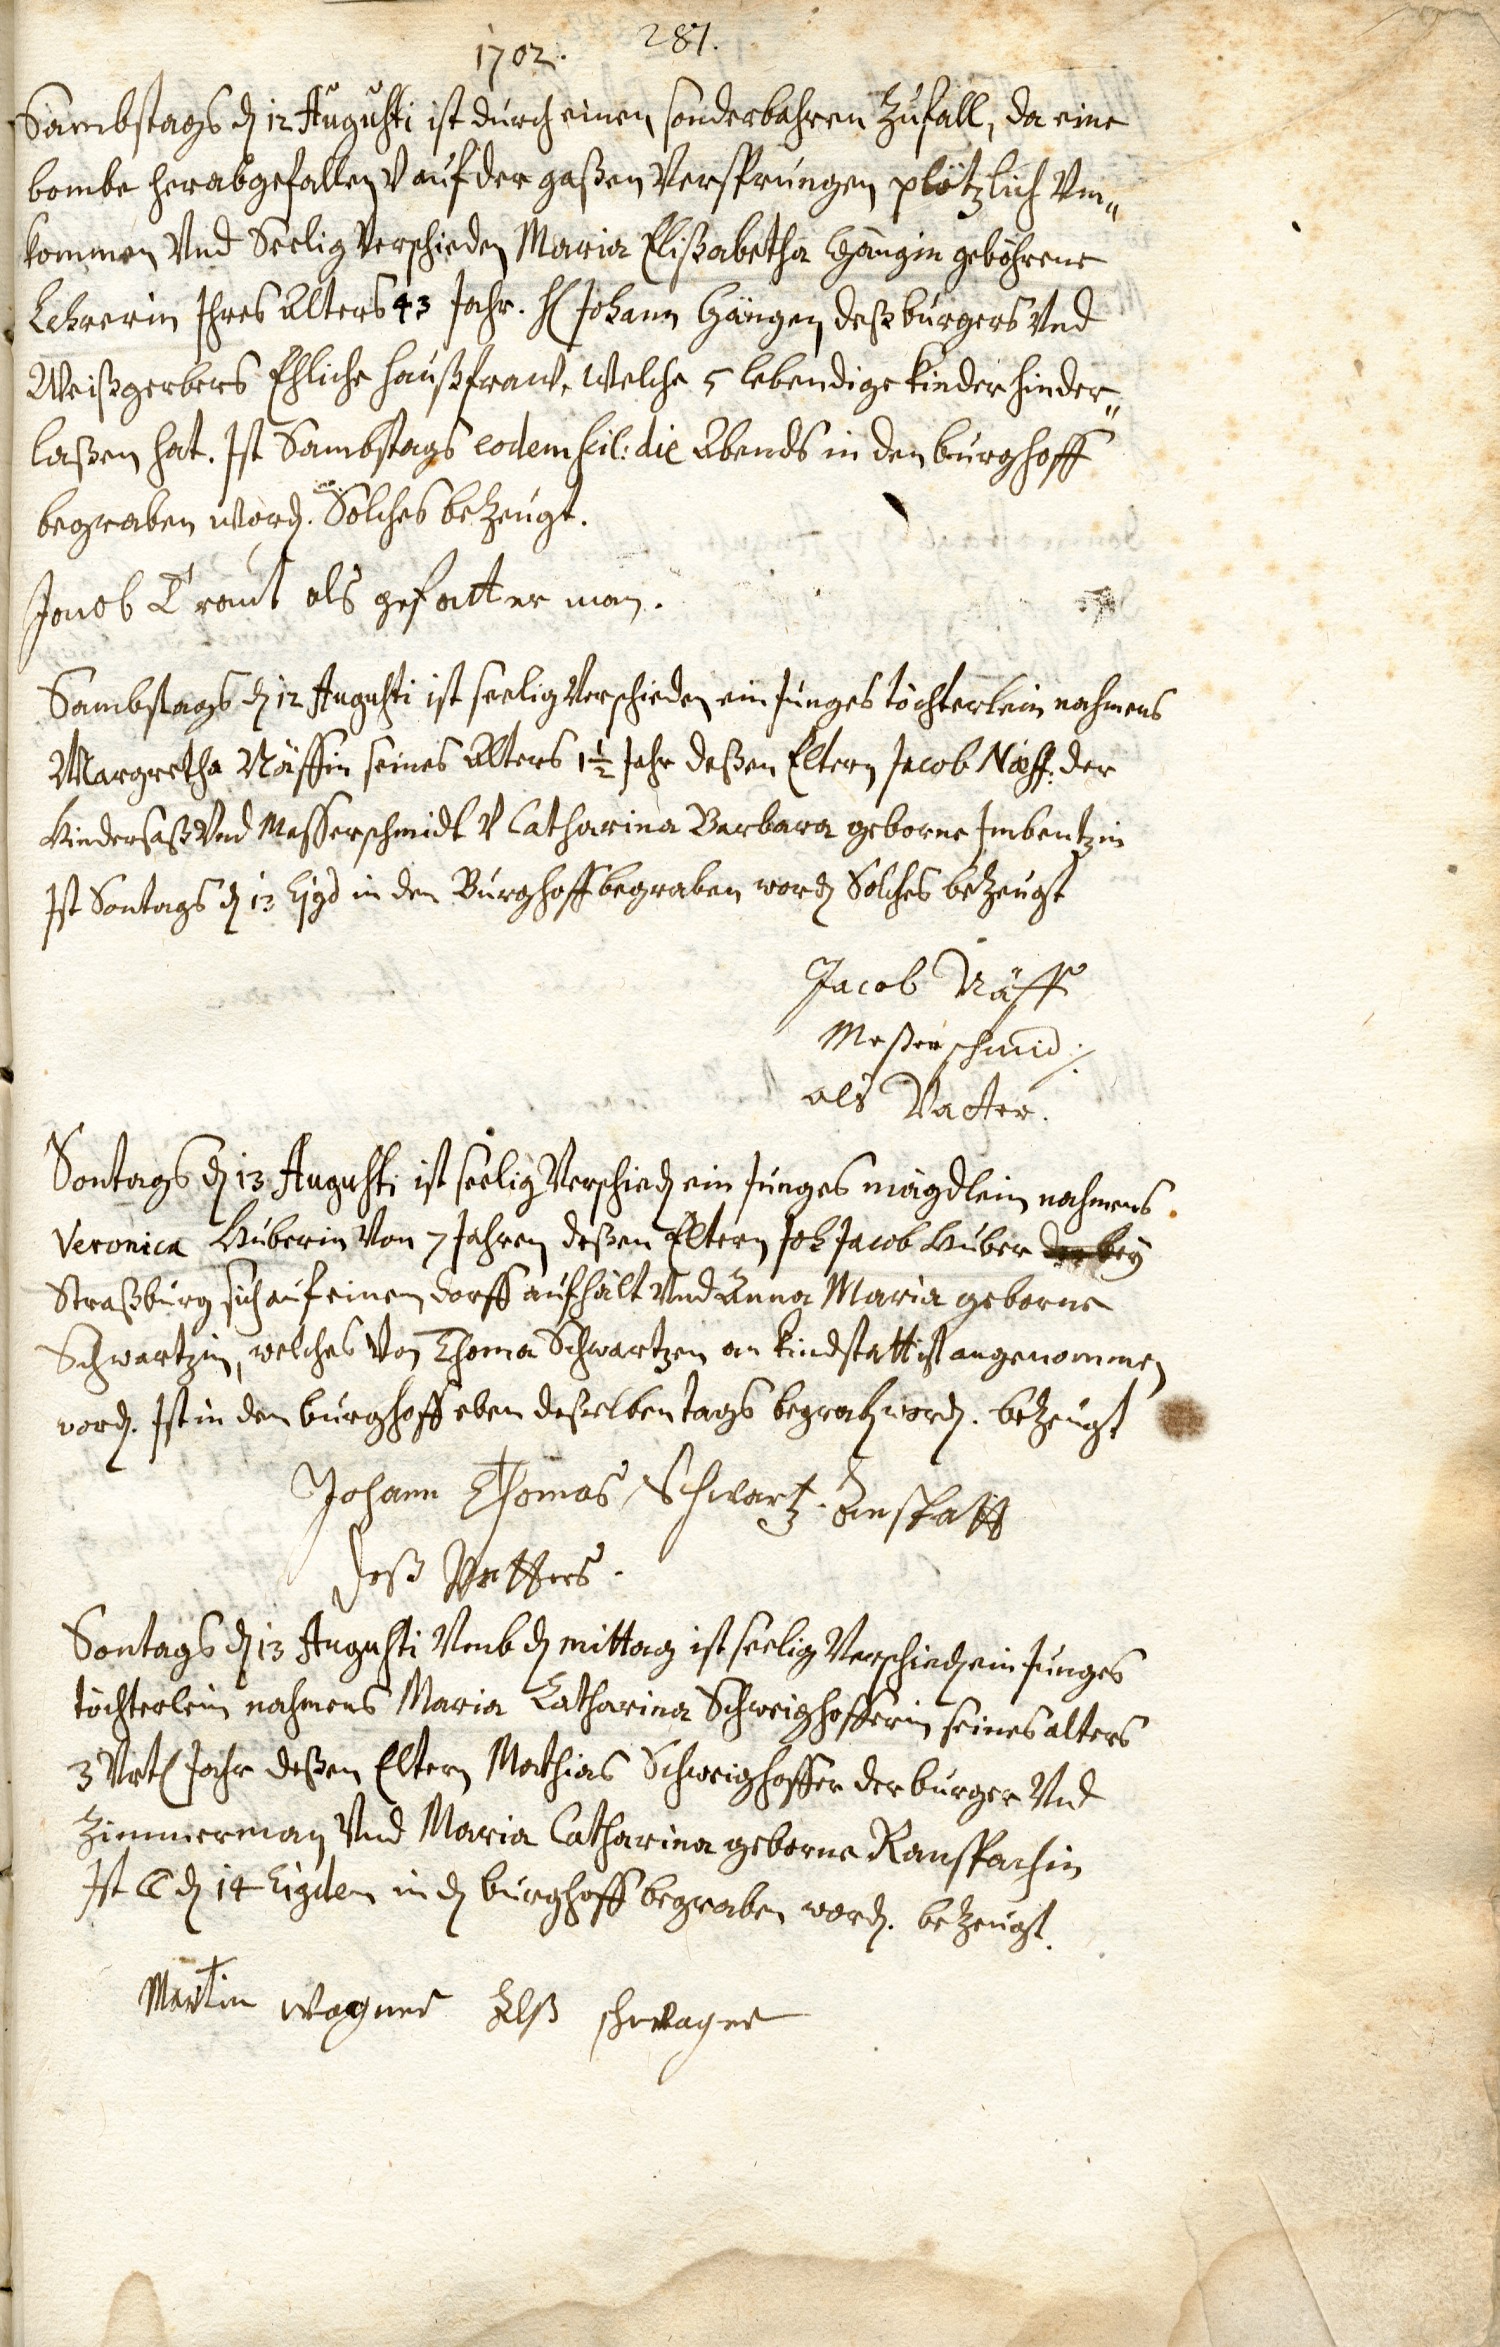 1702. 287.
Sambstags dỹ 12 Augusti ist durch einen sonderbahren Zufall, da eine
bombe herabgefallen v auf der gaßen Versprungen plötzlich Vm„
kommen Vnd Seelig Verschieden Maria Elißabetha Gängin gebohrene
Lehrerin Ihres Alters 43 Jahr. H Johann Gängen deß burgers Vnd
Weißgerbers Ehliche haußfraw, welche 5 lebendige kinder hinder„
laßen hat. Ist Sambstags eodem scil: die Abends in den burghoff
begraben word. Solches bezeugt.
Jacob Traut als gefatter man.
Sambstags d 12 Augusti ist seelig Verschieden ein Junges töchterlein nahmens
Margretha Näffin seines Alters 1½ Jahr deßen Eltern Jacob Näff: der
Hindersaß Vnd Messerschmidt v Catharina Barbara geborne Imbentzin
Ist Sontags d 13 Ejgd in den Burghoff begraben word Solches bezeugt
Jacob Näff
Meßerschmid ·/.
als Vatter.
Sontags d 13 Augusti ist seelig Verschied ein Junges mägdlein nahmens
Veronica Huberin Von 7 Jahren deßen Eltern Joh Jacob Huber der bey
Straßburg sich auf einem dorff aufhält Vnd Anna Maria geborne
Schwartzin, welches Von Thoma Schwartzen an kindstatt ist angenommen
word. Ist in den burghoff eben deßelben tags begrab word. bezeugt
Johann Thomas Schwartz. Anstatt
deß Vatters.
Sontags d 13 Augusti Vmb d mittag ist seelig Verschied ein Junges
töchterlein nahmens Maria Catharina Schweighofferin seines alters
3 Vrtl Jahr deßen Eltern Mathias Schweighoffer der burger Vnd
Zimmerman Vnd Maria Catharina geborne Ranspachin
Ist ☾ d 14 Ejgdem in d burghoff begraben word. bezeugt.
Martin Wagner Alß schwager